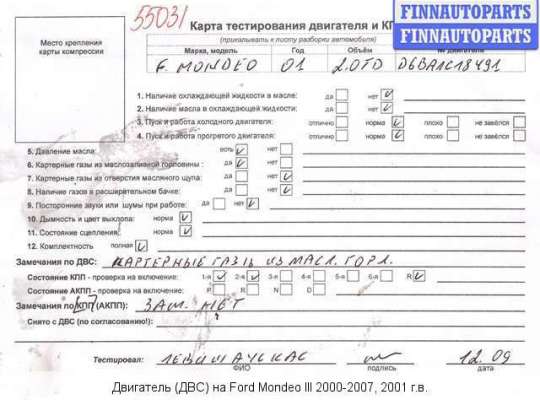 55031
Карта тестирования двигателя и КП
FINNAUTOPARTS
FINNAUTOPARTS
(прикалывать к листу разборки автомобиля)
Место крепления
карты компрессии
Марка, модель Год Объём № двигателя
F. MONDEO 01 2.0TD D6BA1C18491
1. Наличие охлаждающей жидкости в масле: да нет
2. Наличие масла в охлаждающей жидкости: да нет
3. Пуск и работа холодного двигателя: отлично норма плохо не завёлся
4. Пуск и работа прогретого двигателя: отлично норма плохо не завёлся
5. Давление масла: есть нет
6. Картерные газы из маслозаливной горловины: да нет
7. Картерные газы из отверстия масляного щупа: да нет
8. Наличие газов в расширительном бачке: да нет
9. Посторонние звуки или шумы при работе: да нет
10. Дымность и цвет выхлопа: норма
11. Состояние сцепления: норма
12. Комплектность полная
Замечания по ДВС: КАРТЕРНЫЕ ГАЗЫ ИЗ МАСЛ. ГОРЛ.
Состояние КПП - проверка на включение: 1-я 2-я 3-я 4-я 5-я 6-я R
Состояние АКПП - проверка на включение: P R N D
Замечания по КПП (АКПП): ЗАМ. НЕТ
Снято с ДВС (по согласованию!):
Тестировал: 12.09
ФИО подпись дата
Двигатель (ДВС) на Ford Mondeo III 2000-2007, 2001 г.в.